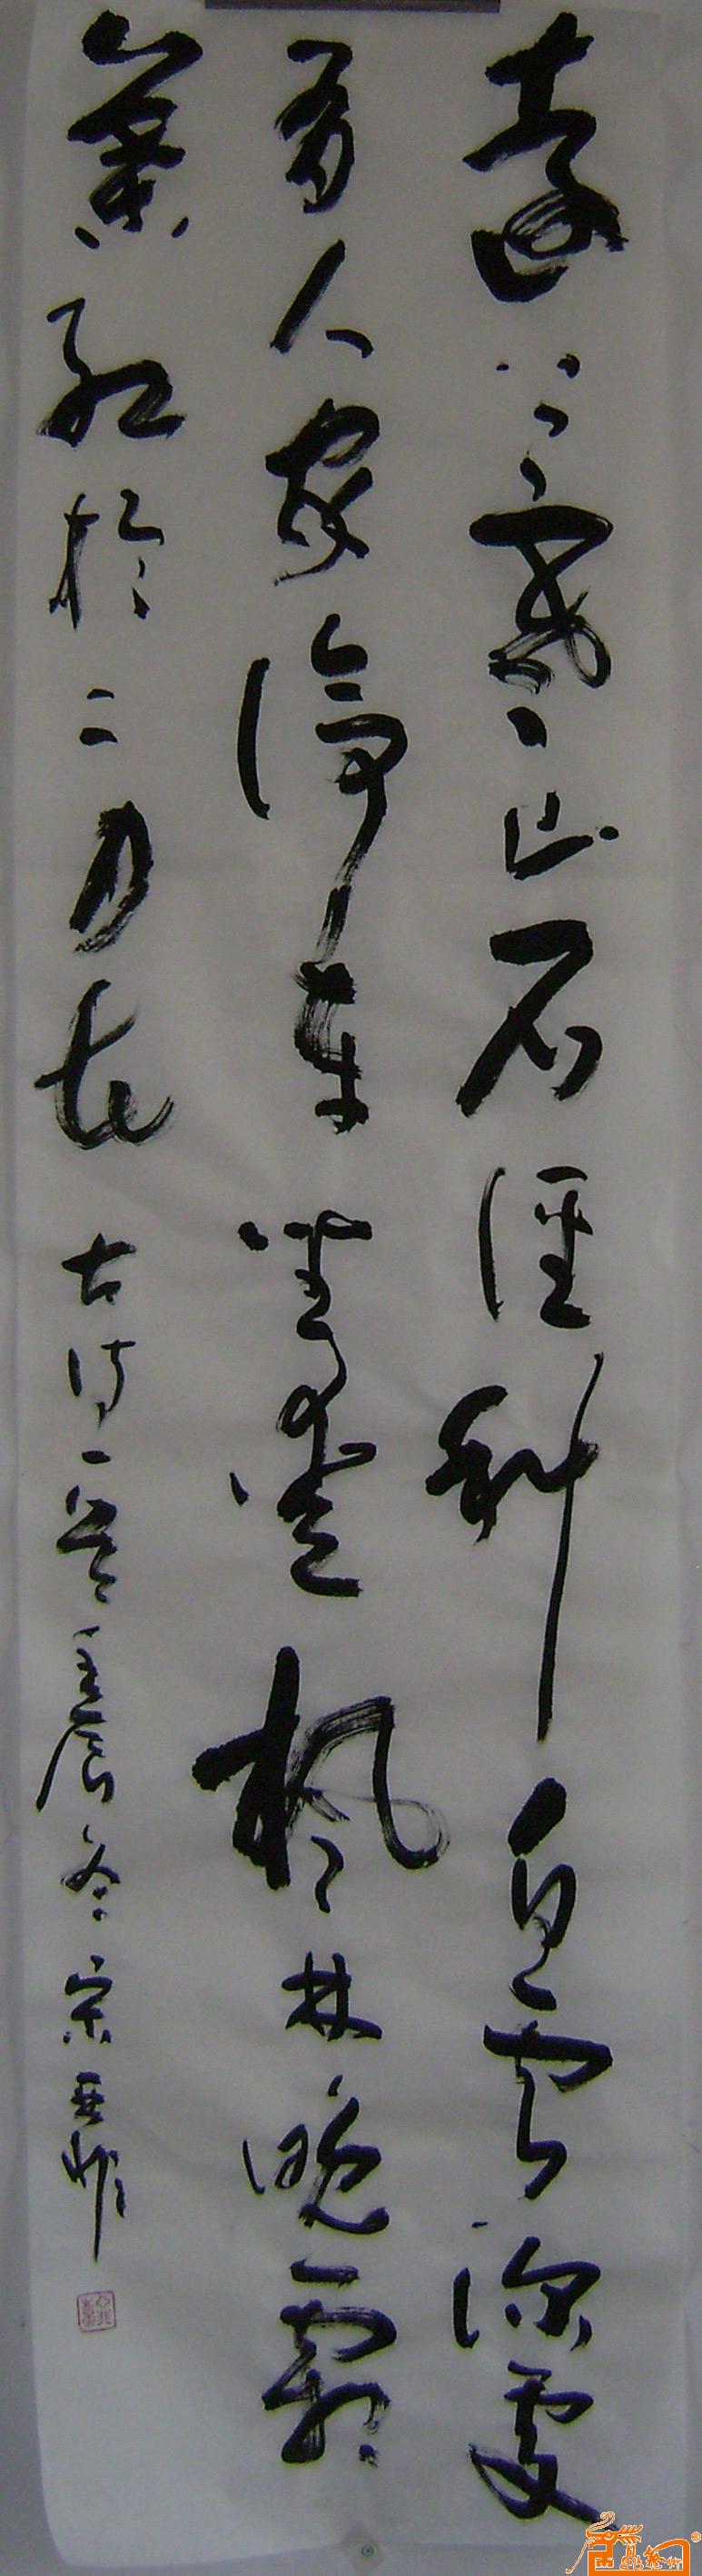 远上寒山石径斜白云深处
有人家停车坐爱枫林晚霜
叶红于二月花 古诗一首 壬辰冬 宗